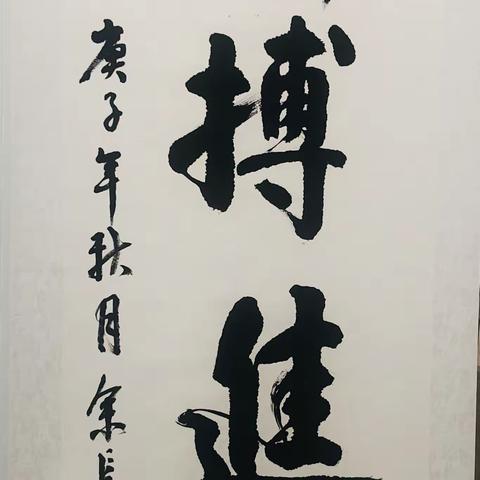 搏進
庚子年秋月余